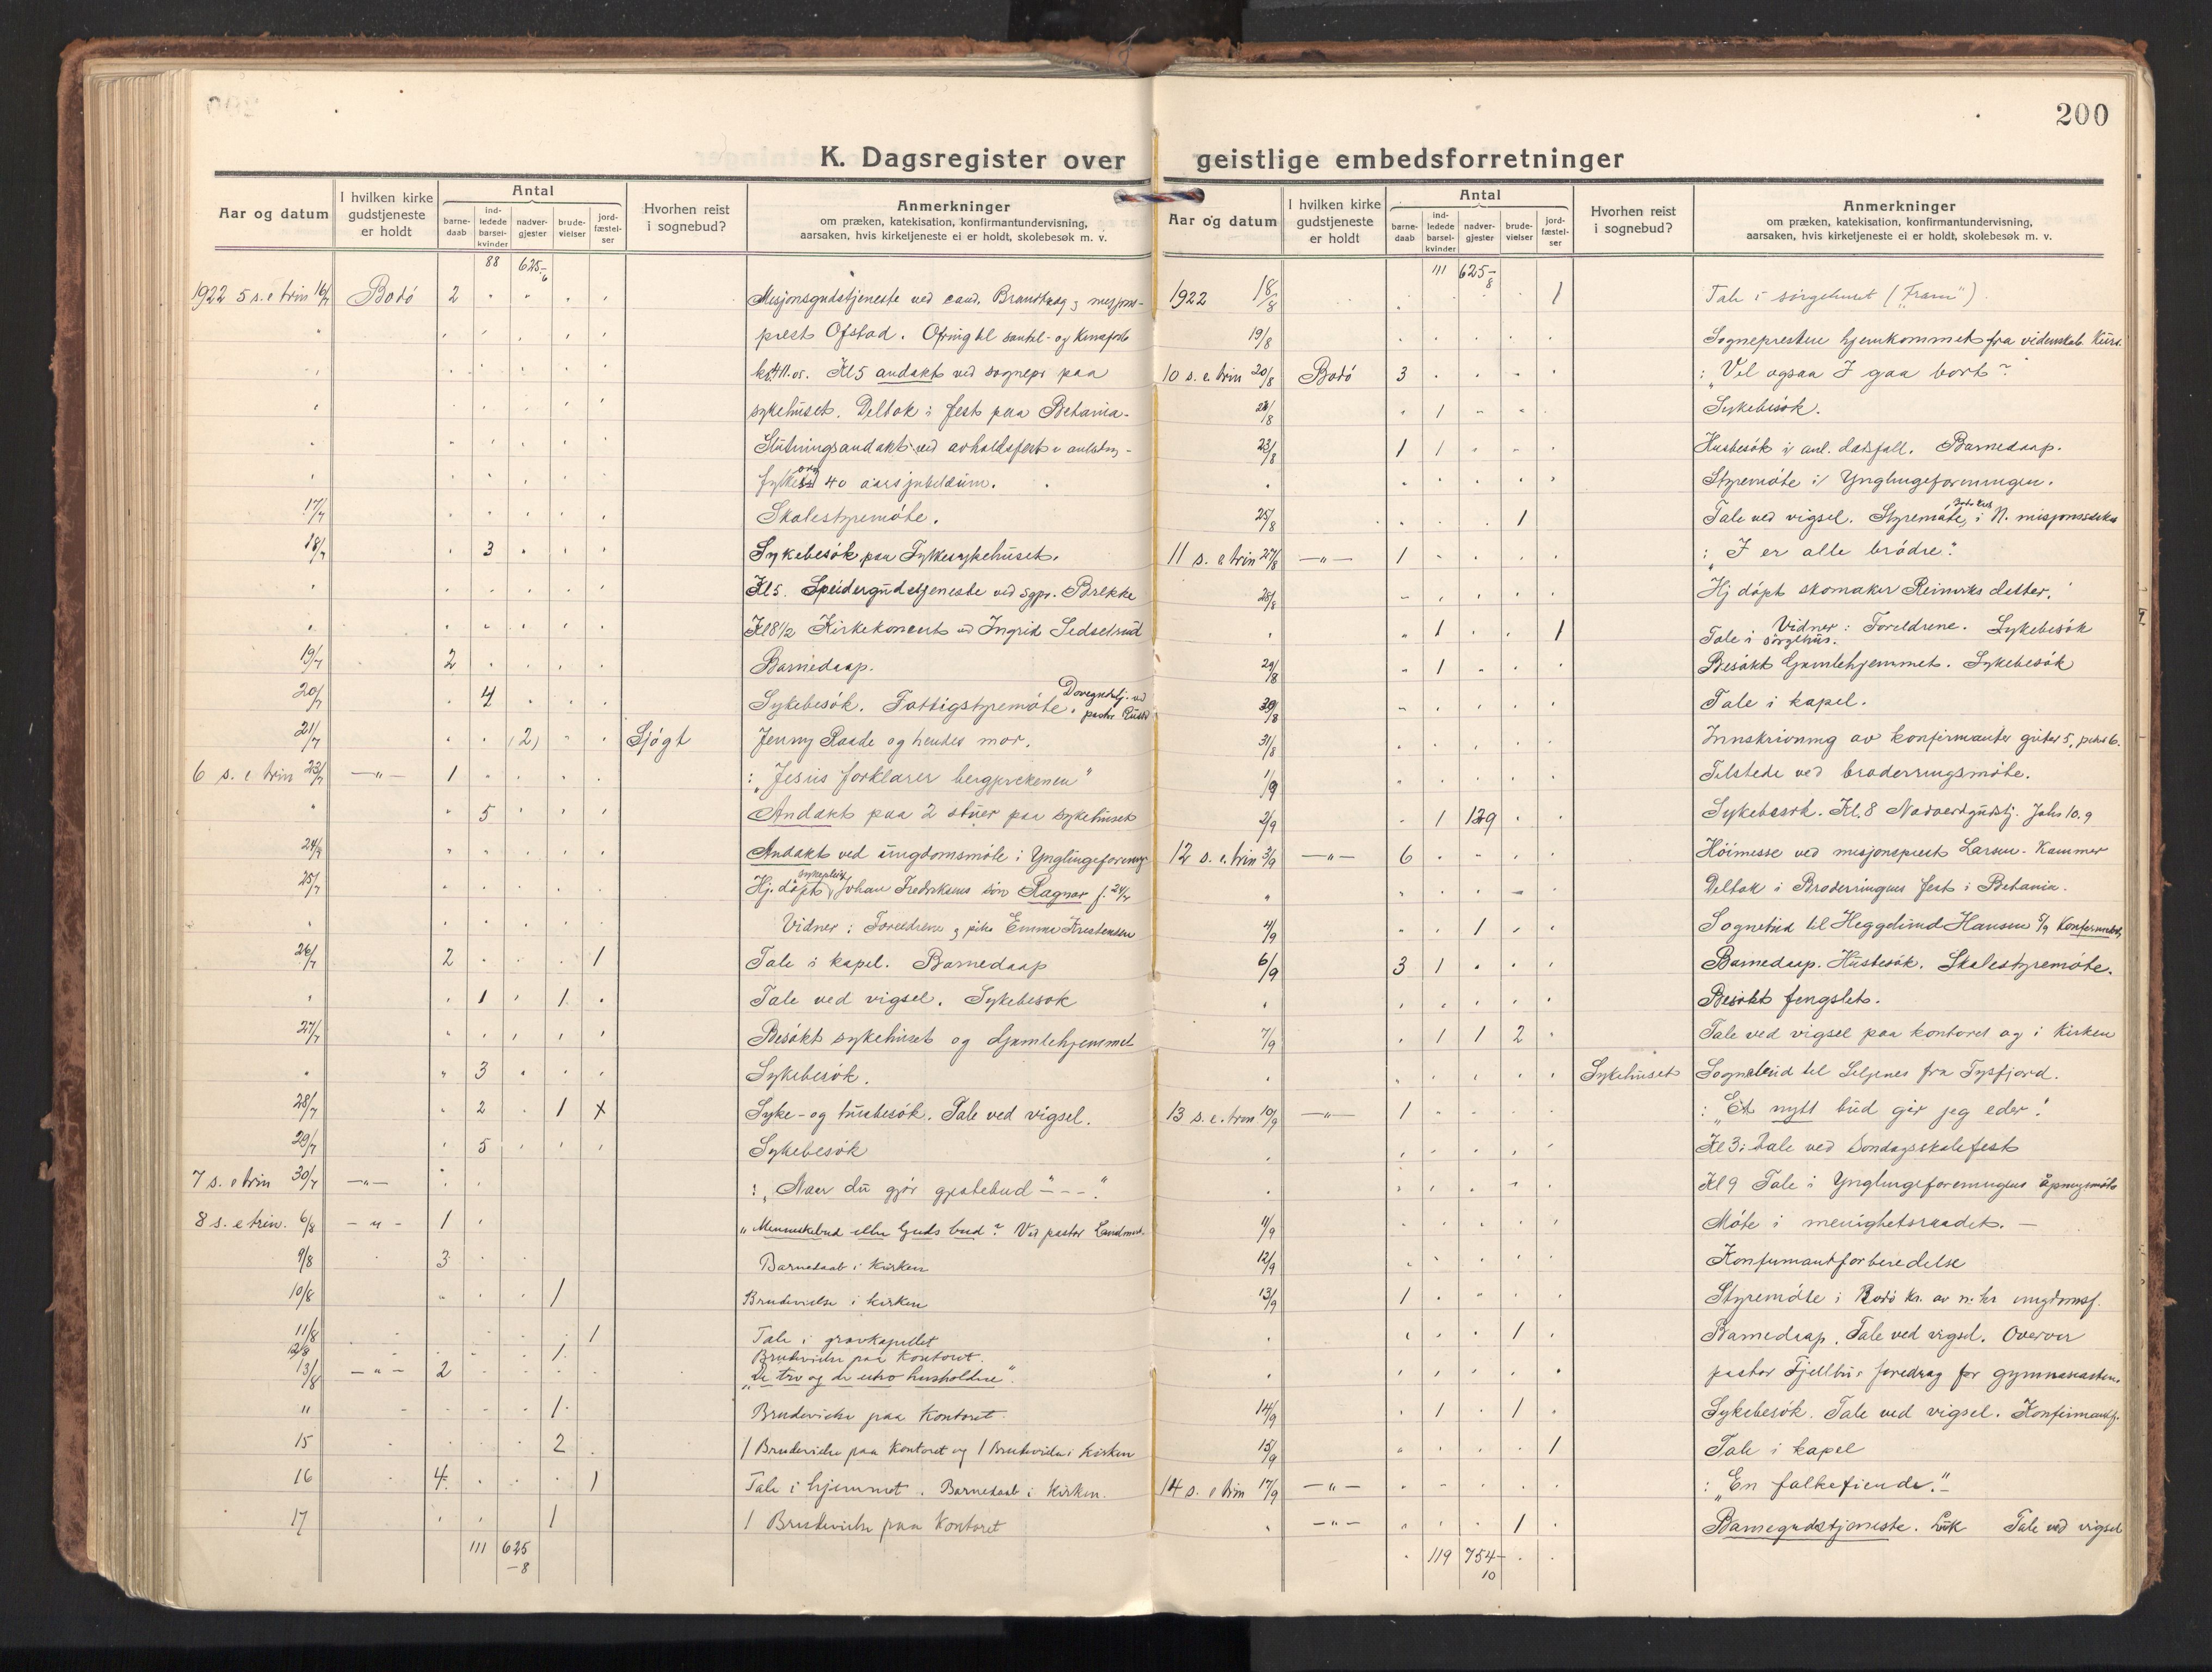 200
K. Dagsregister over geistlige embedsforretninger
Aar og datum
I hvilken kirke gudstjeneste er holdt
Antal
barnedaab
indledede barselkvinder
nadvergjester
brudevielser
jordfæstelser
Hvorhen reist i sognebud?
Anmerkninger
om præken, katekisation, konfirmantundervisning,
aarsaken, hvis kirketjeneste ei er holdt, skolebesøk m. v.
88 625-6
1922 5 s. e trin 16/7 Bodó 2 Misjonsgudstjeneste ved cand. Brandtzæg og misjons-
prest Ofstad. Ofring til santal- og
Kl 5 andakt ved sognepr paa
sykehuset. Deltok i fest paa Betania.
Slutningsandakt ved avholdsfest
40 aars jubilæum.
17/7 Skolestyremóte.
18/7 3 Sykebesók paa Fylkesykehuset.
Kl 5. Speidergudstjeneste ved sgpr. Brekke
Kl 8 1/2 Kirkekoncert ved Ingrid
19/7 2 Barnedaap.
20/7 4 Sykebesók. Fattigstyremóte.
21/7 (2) Sjógt Jenny Raade og hendes mor.
6 s. e trin 23/7 —"— 1 : „Jesus forklarer bergprekenen"
5 Andakt paa 2 stuer paa sykehuset
24/7 Andakt ved ungdomsmóte i Ynglingeforening
25/7 Hj. dópt Johan Fredriksens són Ragnar f. 24/7
Vidner: Foreldrene og pike Emma Kristensen
26/7 2 1 Tale i kapel. Barnedaap
1 1 Tale ved vigsel. Sykebesok
27/7 Besókt sykehuset og Gamlehjemmet
3 Sykebesók.
28/7 2 1 x Syke- og husbesók. Tale ved vigsel.
29/7 5 Sykebesók
7 s. e trin 30/7 —"— : „Naar du gjór gjestebud - - -."
8 s. e trin. 6/8 —"— 1 „Menneskebud eller Guds bud? Ved pastor
9/8 3 Barnedaab i Kirken
10/8 1 Brudevielse i kirken
11/8 1 Tale i gravkapellet
12/8 1 Brudevielse paa Kontoret.
13/8 —"— 2 „De tro og de utro husholdere".
" 1 Brudevielse paa Kontoret.
15 2 1 Brudevielse paa Kontoret og 1 Brudevielse i Kirken
16 4 1 Tale i hjemmet. Barnedaab i Kirken.
17 1 1 Brudevielse paa Kontoret
111 625-8
Aar og datum
I hvilken kirke gudstjeneste er holdt
Antal
barnedaab
indledede barselkvinder
nadvergjester
brudevielser
jordfæstelser
Hvorhen reist i sognebud?
Anmerkninger
om præken, katekisation, konfirmantundervisning,
aarsaken, hvis kirketjeneste ei er holdt, skolebesøk m. v.
111 625-8
1922 18/8 1 Tale i sórgehuset („Fram").
19/8 Sognepresten hjemkommet fra videnskab. Kurs.
10 s. e. trin 20/8 Bodó 3 : „Vil ogsaa I gaa bort?"
1 Sykebesók.
23/8 1 1 Husbesók i anl. dódsfall. Barnedaap.
Styremóte i Ynglingeforeningen.
25/8 1 Tale ved vigsel. Styremóte i N. misjonsselsk
11 s. e trin 27/8 —"— 1 : „I er alle bródre".
28/8 Hj dópt skomaker Reinviks datter.
1 1 Vidner: Foreldrene. Sykebesók
Tale i sórgehus.
29/8 1 Besókt Gamlehjemmet. Sykebesók
30/8 Tale i kapel.
31/8 Innskrivning av konfirmanter guter 5, piker 6.
1/9 Tilstede ved broderringsmóte.
2/9 1 129 Sykebesók. Kl. 8 Nadverdgudstj. Johs 10. 9
12 s. e. trin 3/9 —"— 6 Hóimesse ved misjonsprest Larsen-Kammer
Deltok i Broderringens fest i Betania.
4/9 1 Sognebud til Heggelund Hansen
6/9 3 1 Barnedaap. Husbesók. Skolestyremóte.
Besókt fengslet.
7/9 1 1 2 Tale ved vigsel paa kontoret og i Kirken
Sykehuset Sognebud til Seljenes fra Tysfjord.
13 s. e. trin 10/9 —"— 1 : „Et nytt bud gir jeg eder"
Kl 3: tale ved sóndagsskolefest
Kl 9 Tale i Ynglingeforeningens åpningsmóte
11/9 Móte i menighetsraadet. —
12/9 Konfirmantforberedelse
13/9 1 Styremóte i Bodó kr. av n. kr ungdomsf.
1 Barnedaap. Tale ved vigsel. Overvar
pastor Fjellbus foredrag for gymnasiasten.
14/9 1 1 Sykebesók. Tale ved vigsel. Konfirmantf.
15/9 1 Tale i kapel
14 s. e trin 17/9 —"— : „En folkefiende."
—"— 1 Barnegudstjeneste. Luk Tale ved vigsel
119 754-10